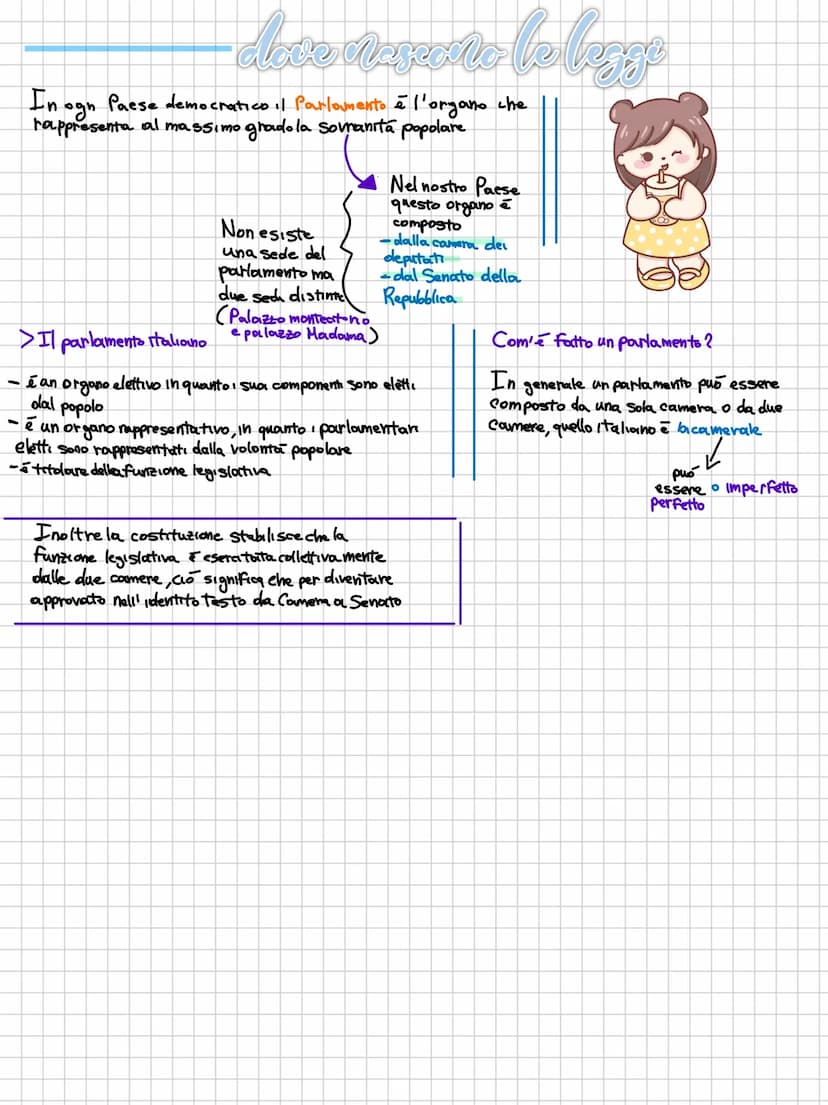 dove nascono le leggi
In ogn Paese democratico il Parlamento è l'organo che
rappresenta al massimo grado la sovranità popolare
Nel nostro Paese
questo organo è
composto
-dalla camera dei
deputati
-dal Senato della
Repubblica
Non esiste
una sede del
parlamento ma
due sedi distinte
(Palazzo montecitorio
e palazzo Madama)
>Il parlamento italiano
- è an organo elettivo in quanto i sua componenti sono eletti
dal popolo
- è un organo rappresentativo, in quanto i parlamentari
eletti sono rappresentati dalla volontà popolare
-è titolare della funzione legislativa
Com'è fatto un parlamento?
In generale un parlamento può essere
composto da una sola camera o da due
camere, quello italiano è bicamerale
può
essere o imperfetto
perfetto
Inoltre la costituzione stabilisce che la
funzione legislativa è esercitata collettivamente
dalle due camere, ciò significa che per diventare
approvato nell'identito testo da Camera a Senato